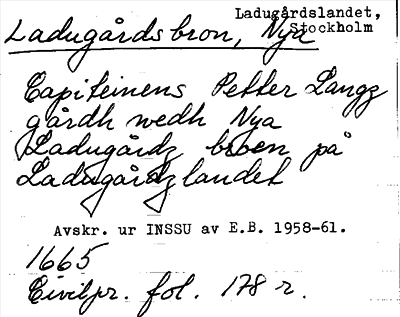 Ladugårdslandet,
Stockholm
Ladugårdsbron, Nya
Capiteinens Petter Langz
gårdh wedh Nya
Ladugårdz broen på
Ladugårdzlandet
Avskr. ur INSSU av E.B. 1958-61.
1665
Civilpr. fol. 178 r.